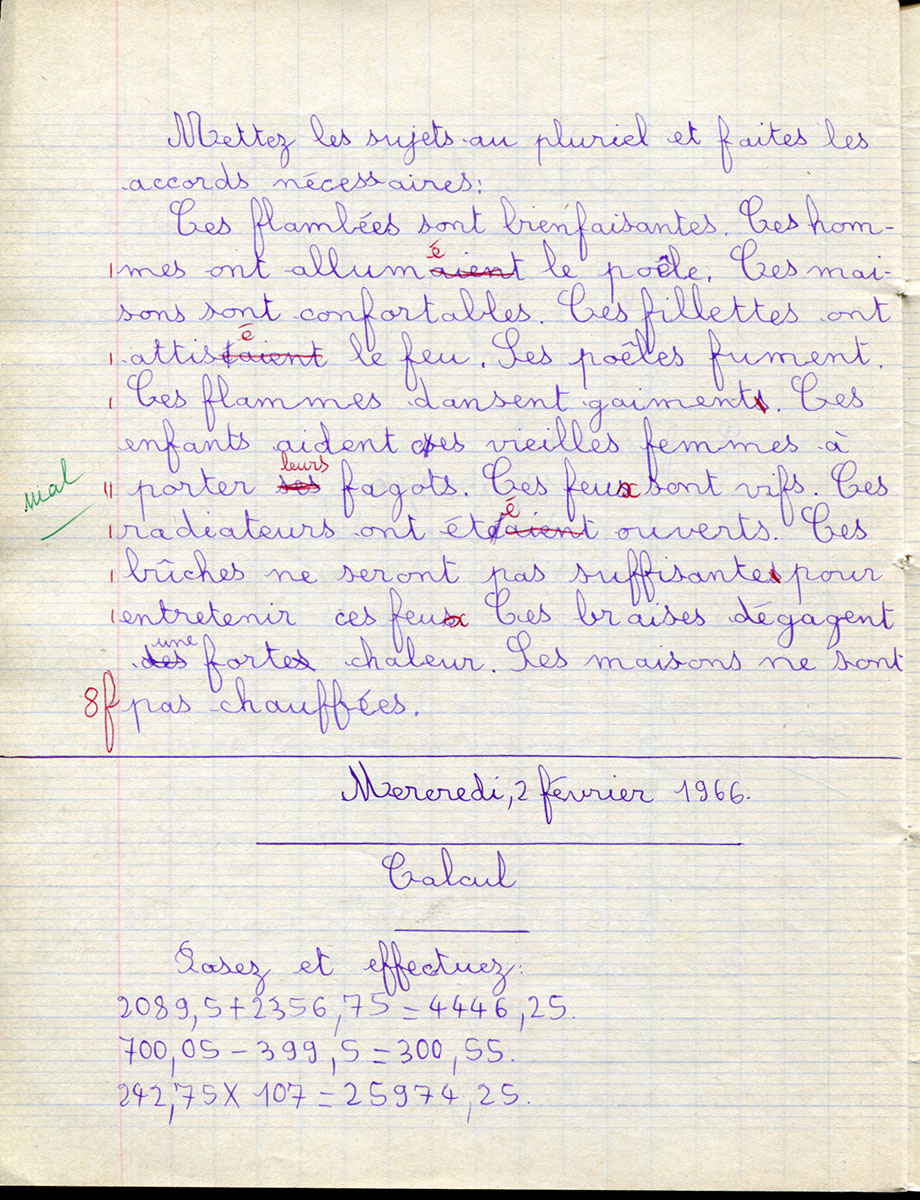 Mettez les sujets au pluriel et faites les
accords nécessaires :
Ces flambées sont bienfaisantes. Ces hom-
mes ont allumaient é le poêle. Ces mai-
sons sont confortables. Ces fillettes ont
attisaient é le feu. Les poêles fument.
Ces flammes dansent gaiments. Ces
enfants aident des vieilles femmes à
mal porter ses leurs fagots. Ces feux sont vifs. Ces
radiateurs ont étaient é ouverts. Ces
bûches ne seront pas suffisantes pour
entretenir ces feux Ces braises dégagent
des une fortes chaleur. Les maisons ne sont
8f pas chauffées.
Mercredi, 2 février 1966.
Calcul
Posez et effectuez :
2089,5 + 2356,75 = 4446,25.
700,05 - 399,5 = 300,55.
242,75 X 107 = 25974,25.